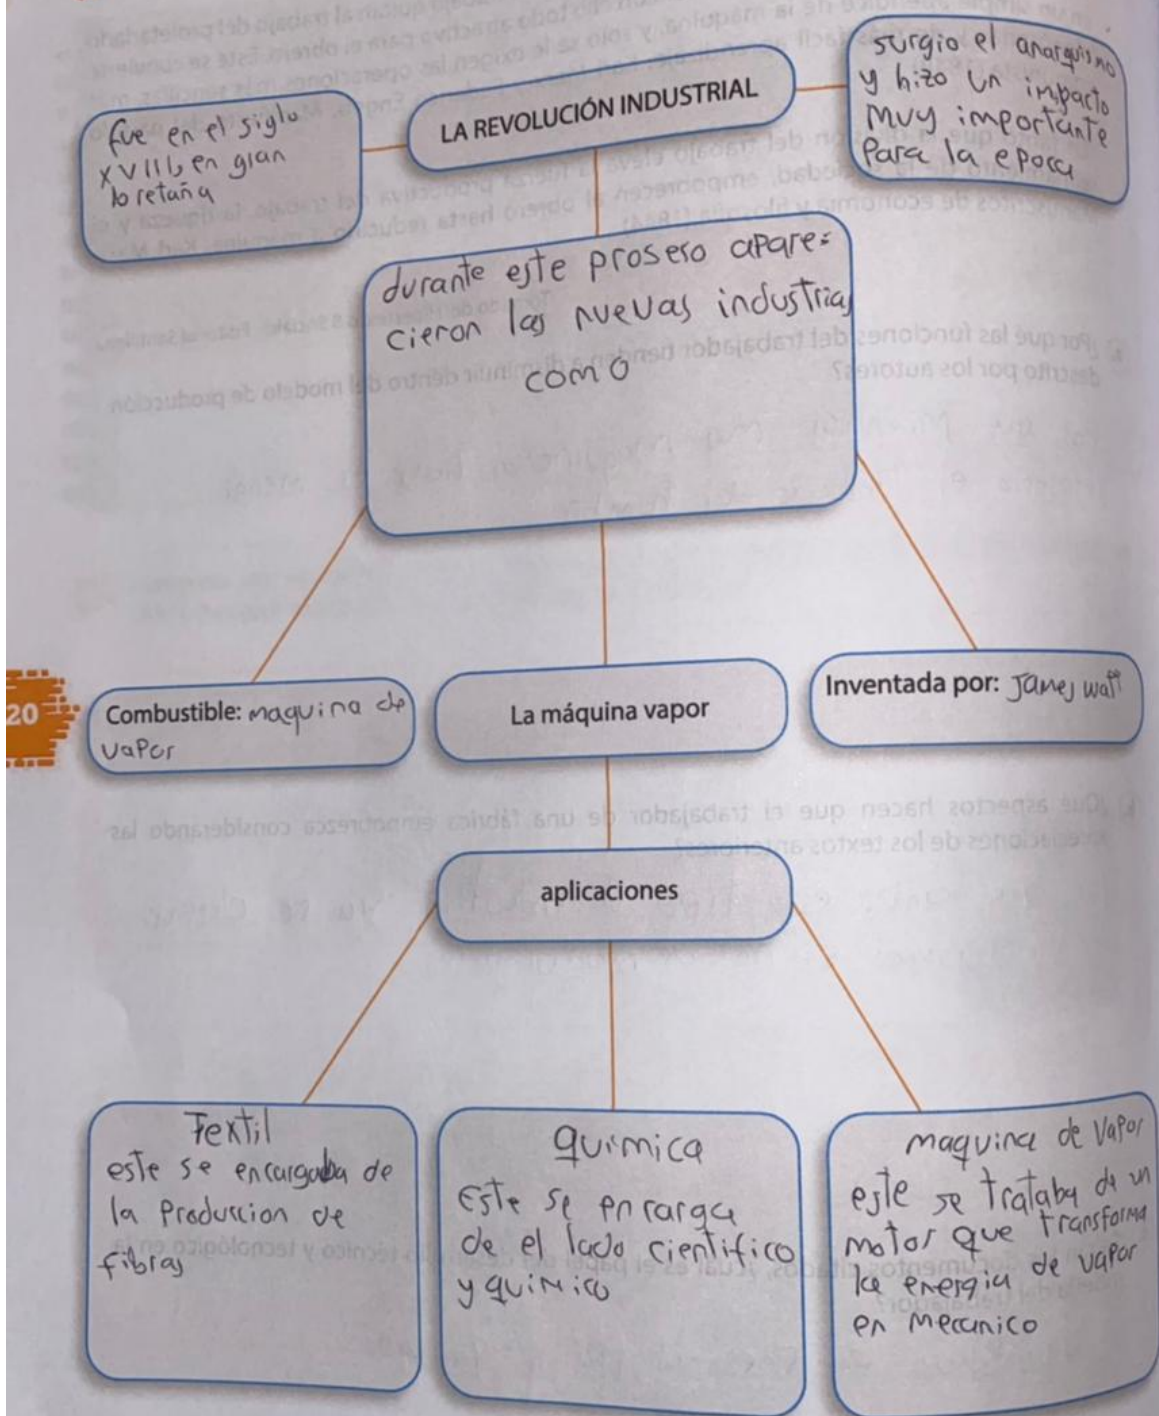 LA REVOLUCIÓN INDUSTRIAL
fue en el siglo
XVIII, en gran
bretaña
surgio el anarquismo
y hizo un impacto
muy importante
para la epoca
durante este proseso apare=
cieron las nuevas industrias
como
20
Combustible: maquina de
vapor
La máquina vapor
Inventada por: James watt
aplicaciones
Textil
este se encargaba de
la Produccion de
fibras
química
Este se encarga
de el lado cientifico
y químico
maquina de vapor
este se trataba de un
motor que transforma
la energia de vapor
en mecanico